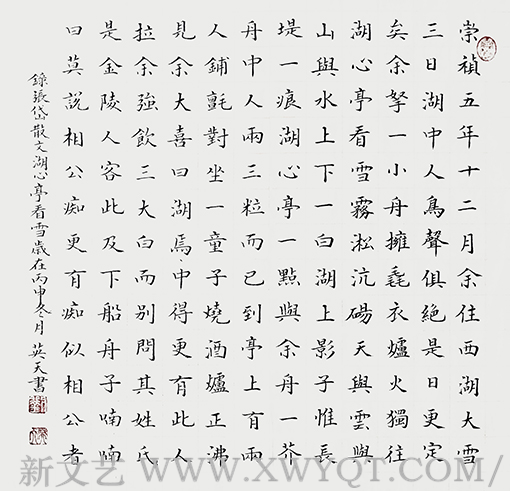 崇禎五年十二月余住西湖大雪
三日湖中人鳥聲俱絕是日更定
矣余拏一小舟擁毳衣爐火獨往
湖心亭看雪霧淞沆碭天與雲與
山與水上下一白湖上影子惟長
堤一痕湖心亭一點與余舟一芥
舟中人兩三粒而已到亭上有兩
人鋪氈對坐一童子燒酒爐正沸
見余大喜曰湖焉、中得更有此人
拉余強飲三大白而別問其姓氏
是金陵人客此及下船舟子喃喃
曰莫說相公痴更有痴似相公者
錄張岱散文湖心亭看雪歲在丙申冬月 英天書
新文艺 WWW.XWYQT.COM